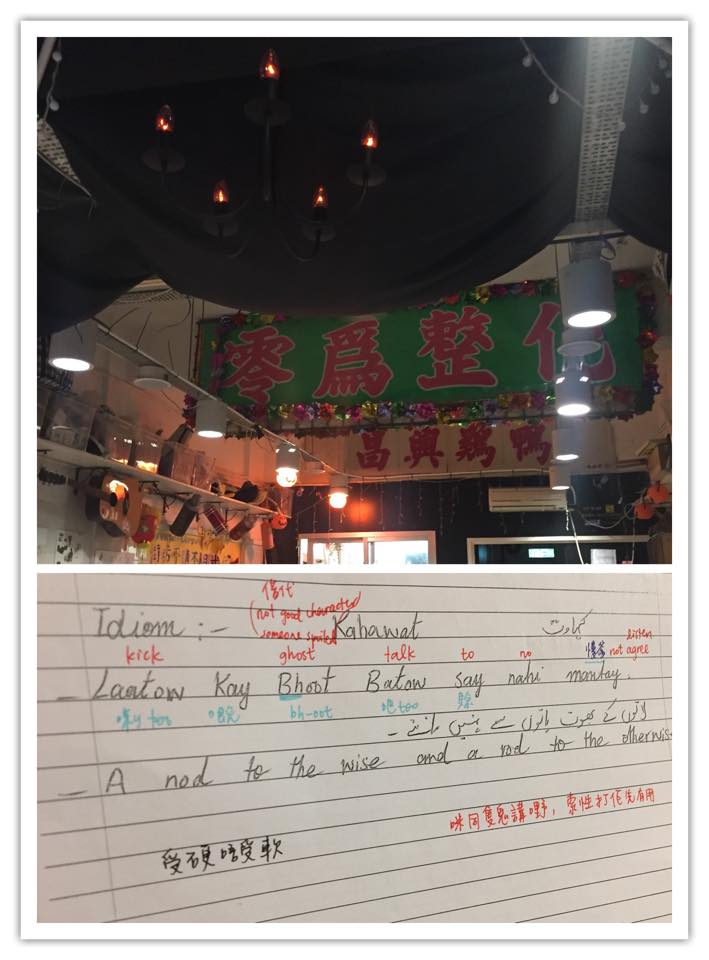 化整爲零
昌興鷄鴨
借代
(not good character)
someone
Idiom :- Kahawat کہاوت
kick ghost talk to no listen
not agree
- Laatow Kay Bhoot Batow say nahi mantay.
too bh-oot 吧too
لاتوں کے بھوت باتوں سے نہیں مانتے -
- A nod to the wise and a rod to the otherwis
咪同隻鬼講嘢，索性打佢先有用
受硬唔受軟